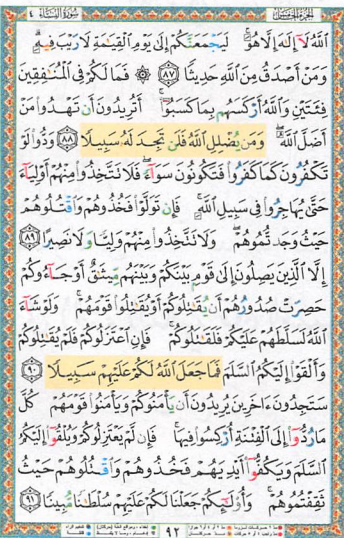 الجزء الخامس سورة النساء ٤
ٱللَّهُ لَآ إِلَـٰهَ إِلَّا هُوَ ۚ لَيَجْمَعَنَّكُمْ إِلَىٰ يَوْمِ ٱلْقِيَـٰمَةِ لَا رَيْبَ فِيهِ ۗ
وَمَنْ أَصْدَقُ مِنَ ٱللَّهِ حَدِيثًا ٨٧ ۞ فَمَا لَكُمْ فِى ٱلْمُنَـٰفِقِينَ
فِئَتَيْنِ وَٱللَّهُ أَرْكَسَهُم بِمَا كَسَبُوٓا۟ ۚ أَتُرِيدُونَ أَن تَهْدُوا۟ مَنْ
أَضَلَّ ٱللَّهُ ۖ وَمَن يُضْلِلِ ٱللَّهُ فَلَن تَجِدَ لَهُۥ سَبِيلًا ٨٨ وَدُّوا۟ لَوْ
تَكْفُرُونَ كَمَا كَفَرُوا۟ فَتَكُونُونَ سَوَآءً ۖ فَلَا تَتَّخِذُوا۟ مِنْهُمْ أَوْلِيَآءَ
حَتَّىٰ يُهَاجِرُوا۟ فِى سَبِيلِ ٱللَّهِ ۚ فَإِن تَوَلَّوْا۟ فَخُذُوهُمْ وَٱقْتُلُوهُمْ
حَيْثُ وَجَدتُّمُوهُمْ ۖ وَلَا تَتَّخِذُوا۟ مِنْهُمْ وَلِيًّا وَلَا نَصِيرًا ٨٩
إِلَّا ٱلَّذِينَ يَصِلُونَ إِلَىٰ قَوْمٍۭ بَيْنَكُمْ وَبَيْنَهُم مِّيثَـٰقٌ أَوْ جَآءُوكُمْ
حَصِرَتْ صُدُورُهُمْ أَن يُقَـٰتِلُوكُمْ أَوْ يُقَـٰتِلُوا۟ قَوْمَهُمْ ۚ وَلَوْ شَآءَ
ٱللَّهُ لَسَلَّطَهُمْ عَلَيْكُمْ فَلَقَـٰتَلُوكُمْ ۚ فَإِنِ ٱعْتَزَلُوكُمْ فَلَمْ يُقَـٰتِلُوكُمْ
وَأَلْقَوْا۟ إِلَيْكُمُ ٱلسَّلَمَ فَمَا جَعَلَ ٱللَّهُ لَكُمْ عَلَيْهِمْ سَبِيلًا ٩٠
سَتَجِدُونَ ءَاخَرِينَ يُرِيدُونَ أَن يَأْمَنُوكُمْ وَيَأْمَنُوا۟ قَوْمَهُمْ كُلَّ
مَا رُدُّوٓا۟ إِلَى ٱلْفِتْنَةِ أُرْكِسُوا۟ فِيهَا ۚ فَإِن لَّمْ يَعْتَزِلُوكُمْ وَيُلْقُوٓا۟ إِلَيْكُمُ
ٱلسَّلَمَ وَيَكُفُّوٓا۟ أَيْدِيَهُمْ فَخُذُوهُمْ وَٱقْتُلُوهُمْ حَيْثُ
ثَقِفْتُمُوهُمْ ۚ وَأُو۟لَـٰٓئِكُمْ جَعَلْنَا لَكُمْ عَلَيْهِمْ سُلْطَـٰنًا مُّبِينًا ٩١
٩٢